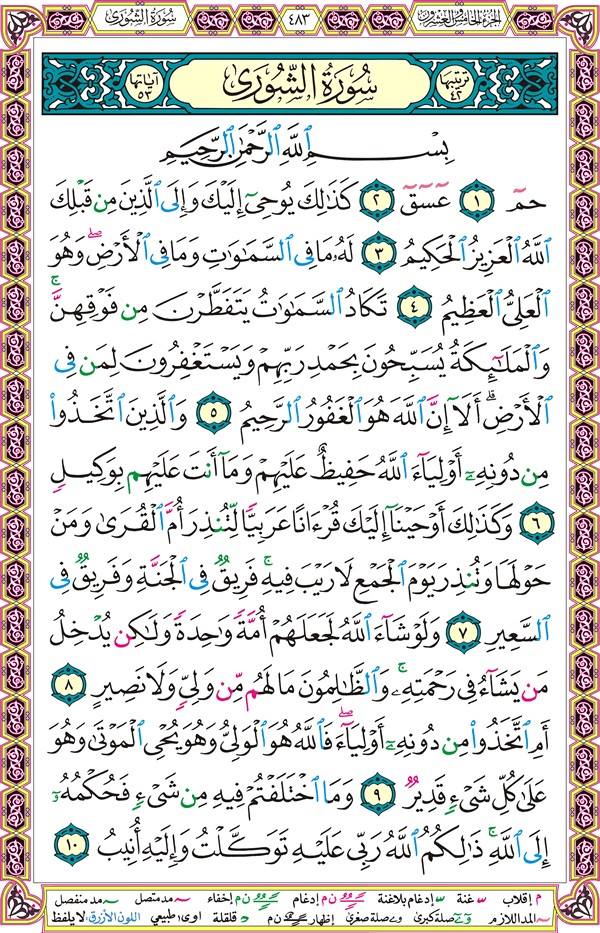 الجزء الخامس والعشرون ٤٨٣ سورة الشورى
ترتيبها ٤٢ سُورَةُ الشُّورَىٰ آياتها ٥٣
بِسْمِ ٱللَّهِ ٱلرَّحْمَٰنِ ٱلرَّحِيمِ
حمٓ ١ عٓسٓقٓ ٢ كَذَٰلِكَ يُوحِىٓ إِلَيْكَ وَإِلَى ٱلَّذِينَ مِن قَبْلِكَ
ٱللَّهُ ٱلْعَزِيزُ ٱلْحَكِيمُ ٣ لَهُۥ مَا فِى ٱلسَّمَٰوَٰتِ وَمَا فِى ٱلْأَرْضِۖ وَهُوَ
ٱلْعَلِىُّ ٱلْعَظِيمُ ٤ تَكَادُ ٱلسَّمَٰوَٰتُ يَتَفَطَّرْنَ مِن فَوْقِهِنَّۚ
وَٱلْمَلَٰٓئِكَةُ يُسَبِّحُونَ بِحَمْدِ رَبِّهِمْ وَيَسْتَغْفِرُونَ لِمَن فِى
ٱلْأَرْضِۗ أَلَآ إِنَّ ٱللَّهَ هُوَ ٱلْغَفُورُ ٱلرَّحِيمُ ٥ وَٱلَّذِينَ ٱتَّخَذُوا۟
مِن دُونِهِۦٓ أَوْلِيَآءَ ٱللَّهُ حَفِيظٌ عَلَيْهِمْ وَمَآ أَنتَ عَلَيْهِم بِوَكِيلٍ
٦ وَكَذَٰلِكَ أَوْحَيْنَآ إِلَيْكَ قُرْءَانًا عَرَبِيًّا لِّتُنذِرَ أُمَّ ٱلْقُرَىٰ وَمَنْ
حَوْلَهَا وَتُنذِرَ يَوْمَ ٱلْجَمْعِ لَا رَيْبَ فِيهِۚ فَرِيقٌ فِى ٱلْجَنَّةِ وَفَرِيقٌ فِى
ٱلسَّعِيرِ ٧ وَلَوْ شَآءَ ٱللَّهُ لَجَعَلَهُمْ أُمَّةً وَٰحِدَةً وَلَٰكِن يُدْخِلُ
مَن يَشَآءُ فِى رَحْمَتِهِۦۚ وَٱلظَّٰلِمُونَ مَا لَهُم مِّن وَلِىٍّ وَلَا نَصِيرٍ ٨
أَمِ ٱتَّخَذُوا۟ مِن دُونِهِۦٓ أَوْلِيَآءَۖ فَٱللَّهُ هُوَ ٱلْوَلِىُّ وَهُوَ يُحْىِ ٱلْمَوْتَىٰ وَهُوَ
عَلَىٰ كُلِّ شَىْءٍ قَدِيرٌ ٩ وَمَا ٱخْتَلَفْتُمْ فِيهِ مِن شَىْءٍ فَحُكْمُهُۥٓ
إِلَى ٱللَّهِۚ ذَٰلِكُمُ ٱللَّهُ رَبِّى عَلَيْهِ تَوَكَّلْتُ وَإِلَيْهِ أُنِيبُ ١٠
م إقلاب غنة إدغام بلا غنة ن م إدغام ن م إخفاء مد متصل مد منفصل
المد اللازم صلة كبرى صلة صغرى إظهار ن م قلقلة اوى طبيعي اللون الأزرق: لا يلفظ